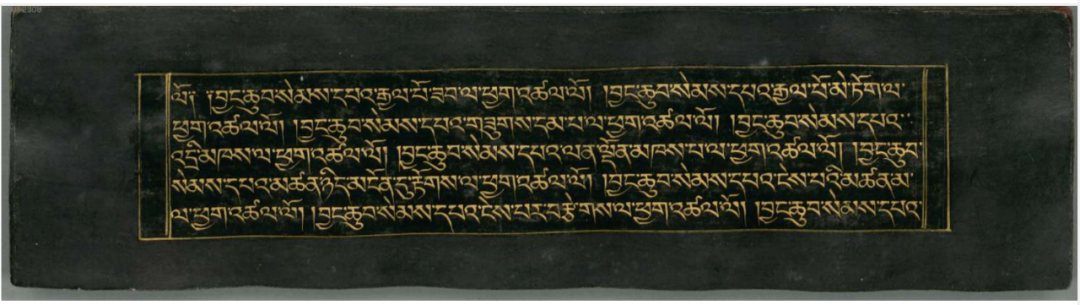 ལོ། །བྱང་ཆུབ་སེམས་དཔའ་རྒྱལ་པོ་ཟབ་ལ་ཕྱག་འཚལ་ལོ། །བྱང་ཆུབ་སེམས་དཔའ་རྒྱལ་པོ་མེ་ཏོག་ལ་
ཕྱག་འཚལ་ལོ། །བྱང་ཆུབ་སེམས་དཔའ་གཟུགས་དམ་པ་ལ་ཕྱག་འཚལ་ལོ། །བྱང་ཆུབ་སེམས་དཔའ་
འདྲི་མཁས་ལ་ཕྱག་འཚལ་ལོ། །བྱང་ཆུབ་སེམས་དཔའ་ལན་ལྡོན་མཁས་པ་ལ་ཕྱག་འཚལ་ལོ། །བྱང་ཆུབ་
སེམས་དཔའ་མཚན་ཉིད་མངོན་དུ་རྟོགས་ལ་ཕྱག་འཚལ་ལོ། །བྱང་ཆུབ་སེམས་དཔའ་ངེས་པའི་མཚན་མ་
ལ་ཕྱག་འཚལ་ལོ། །བྱང་ཆུབ་སེམས་དཔའ་ངེས་པར་བརྩེགས་ལ་ཕྱག་འཚལ་ལོ། །བྱང་ཆུབ་སེམས་དཔའ་